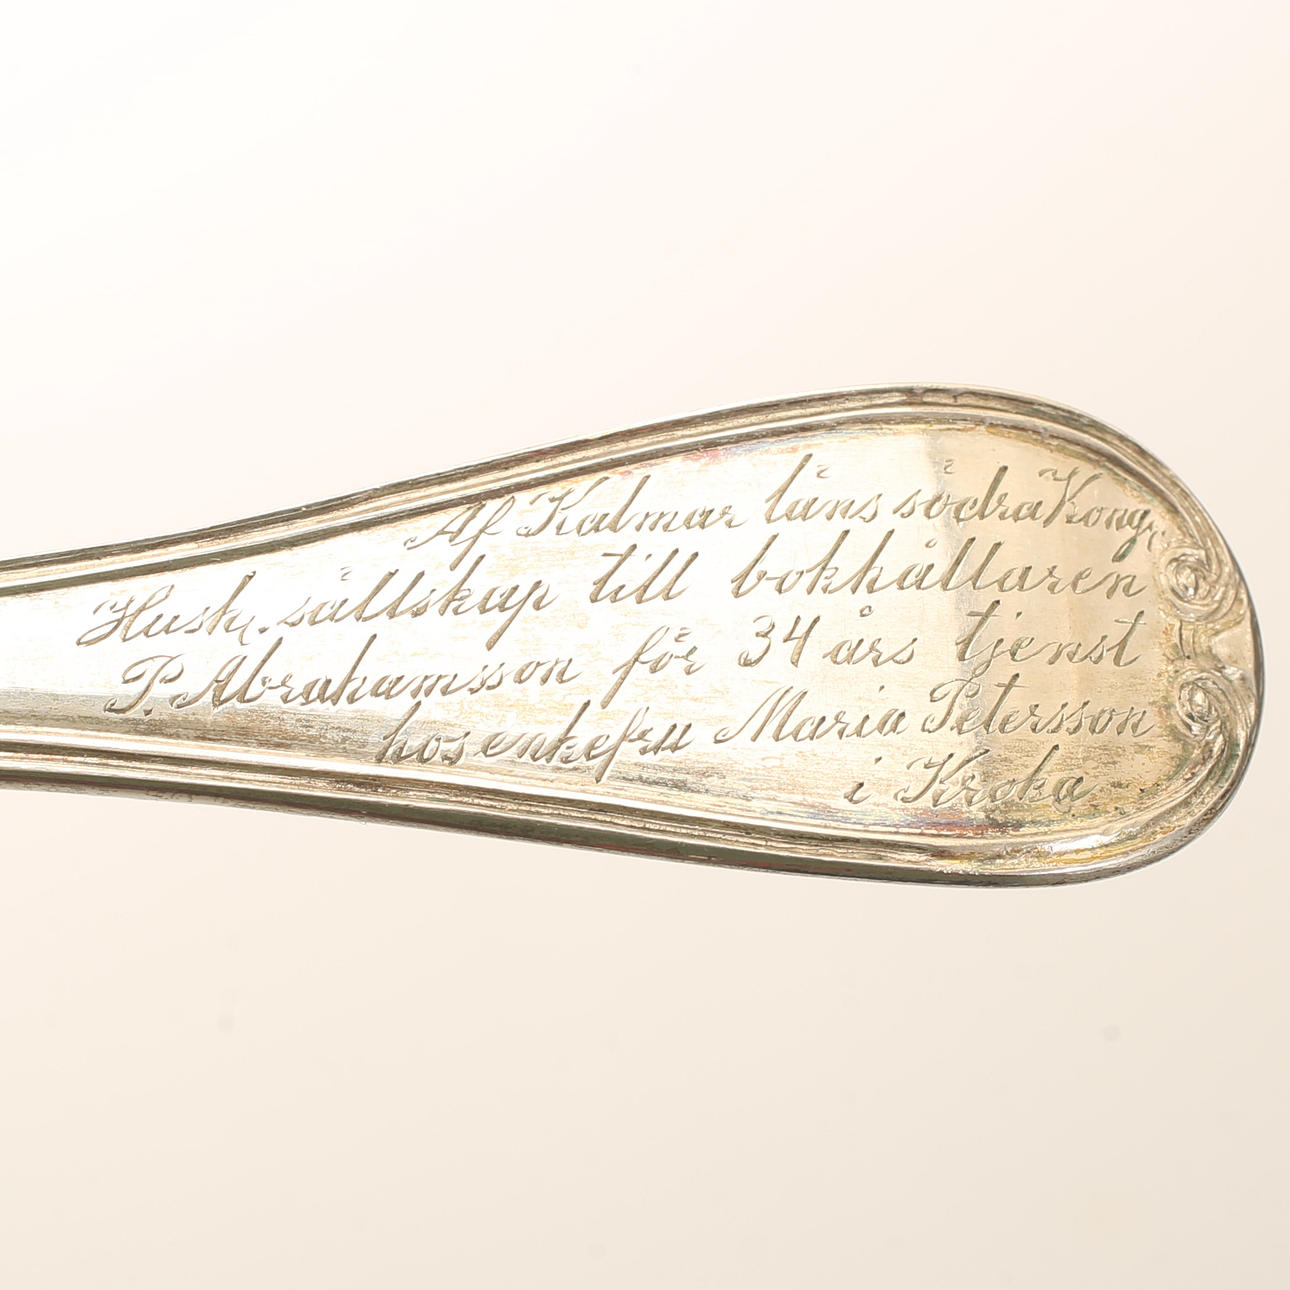 Af Kalmar läns södra Kongl.
Hushl. sällskap till bokhållaren
P. Abrahamsson för 34 års tjenst
hos enkefru Maria Petersson
i Kroka